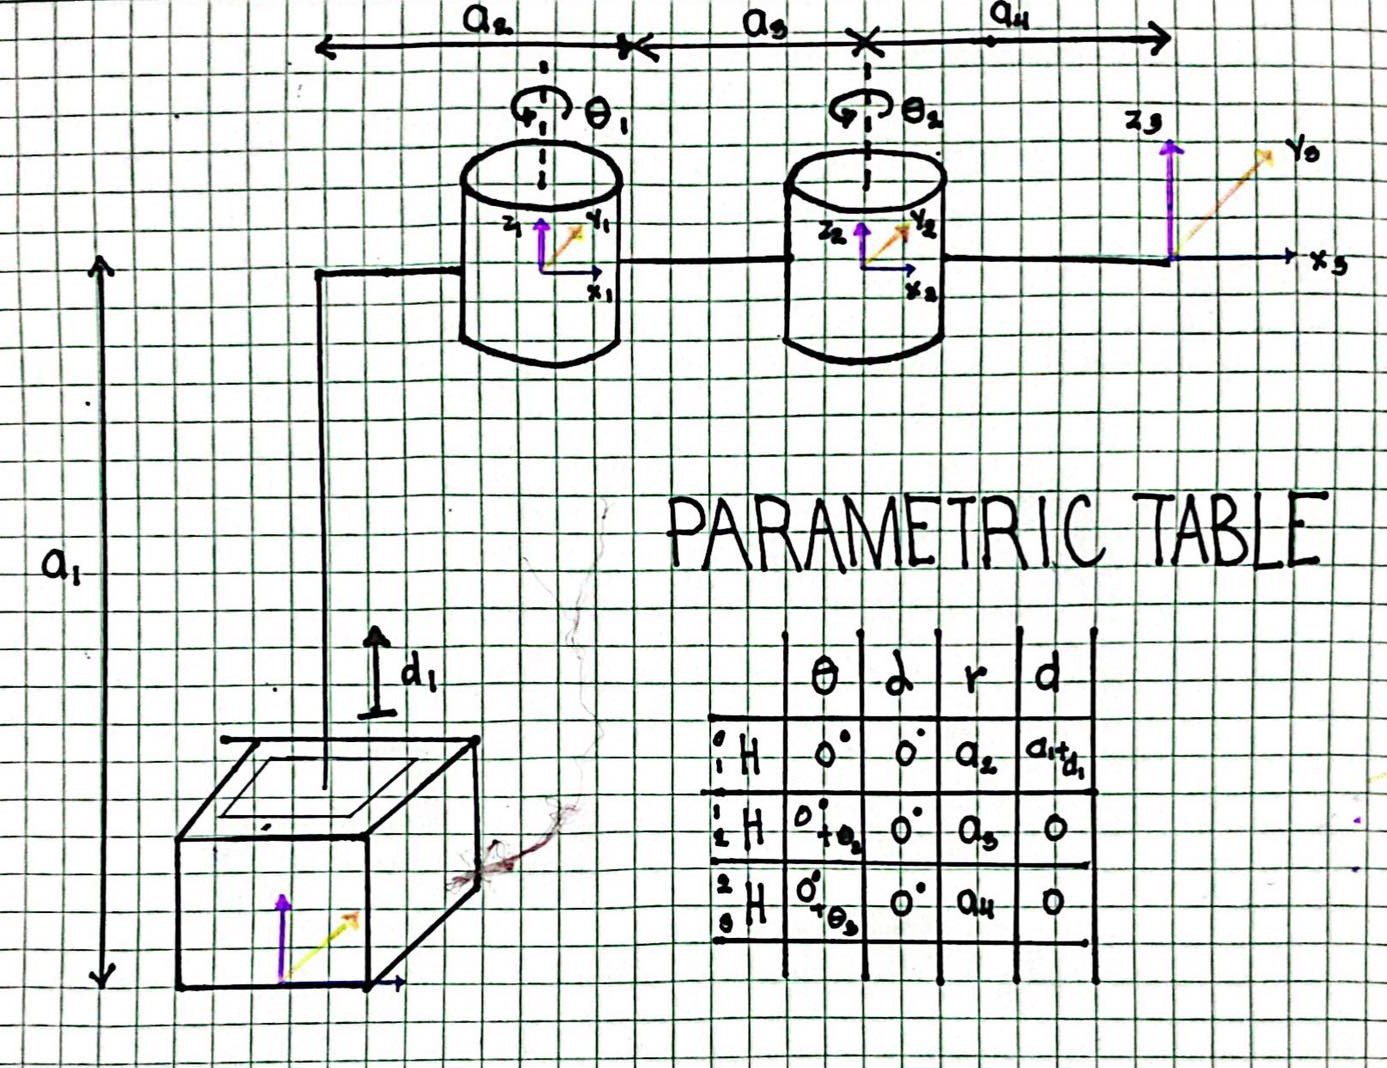 a₂ a₃ a₄
θ₁ θ₂
z₃ y₃
z₁ y₁ z₂ y₂
x₁ x₂ x₃
a₁
PARAMETRIC TABLE
d₁
θ α r d
⁰₁H 0° 0° a₂ a₁+d₁
¹₂H 0°+θ₂ 0° a₃ 0
²₃H 0°+θ₃ 0° a₄ 0